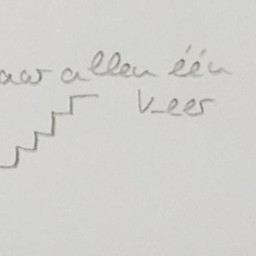 aar allen één
V-eer